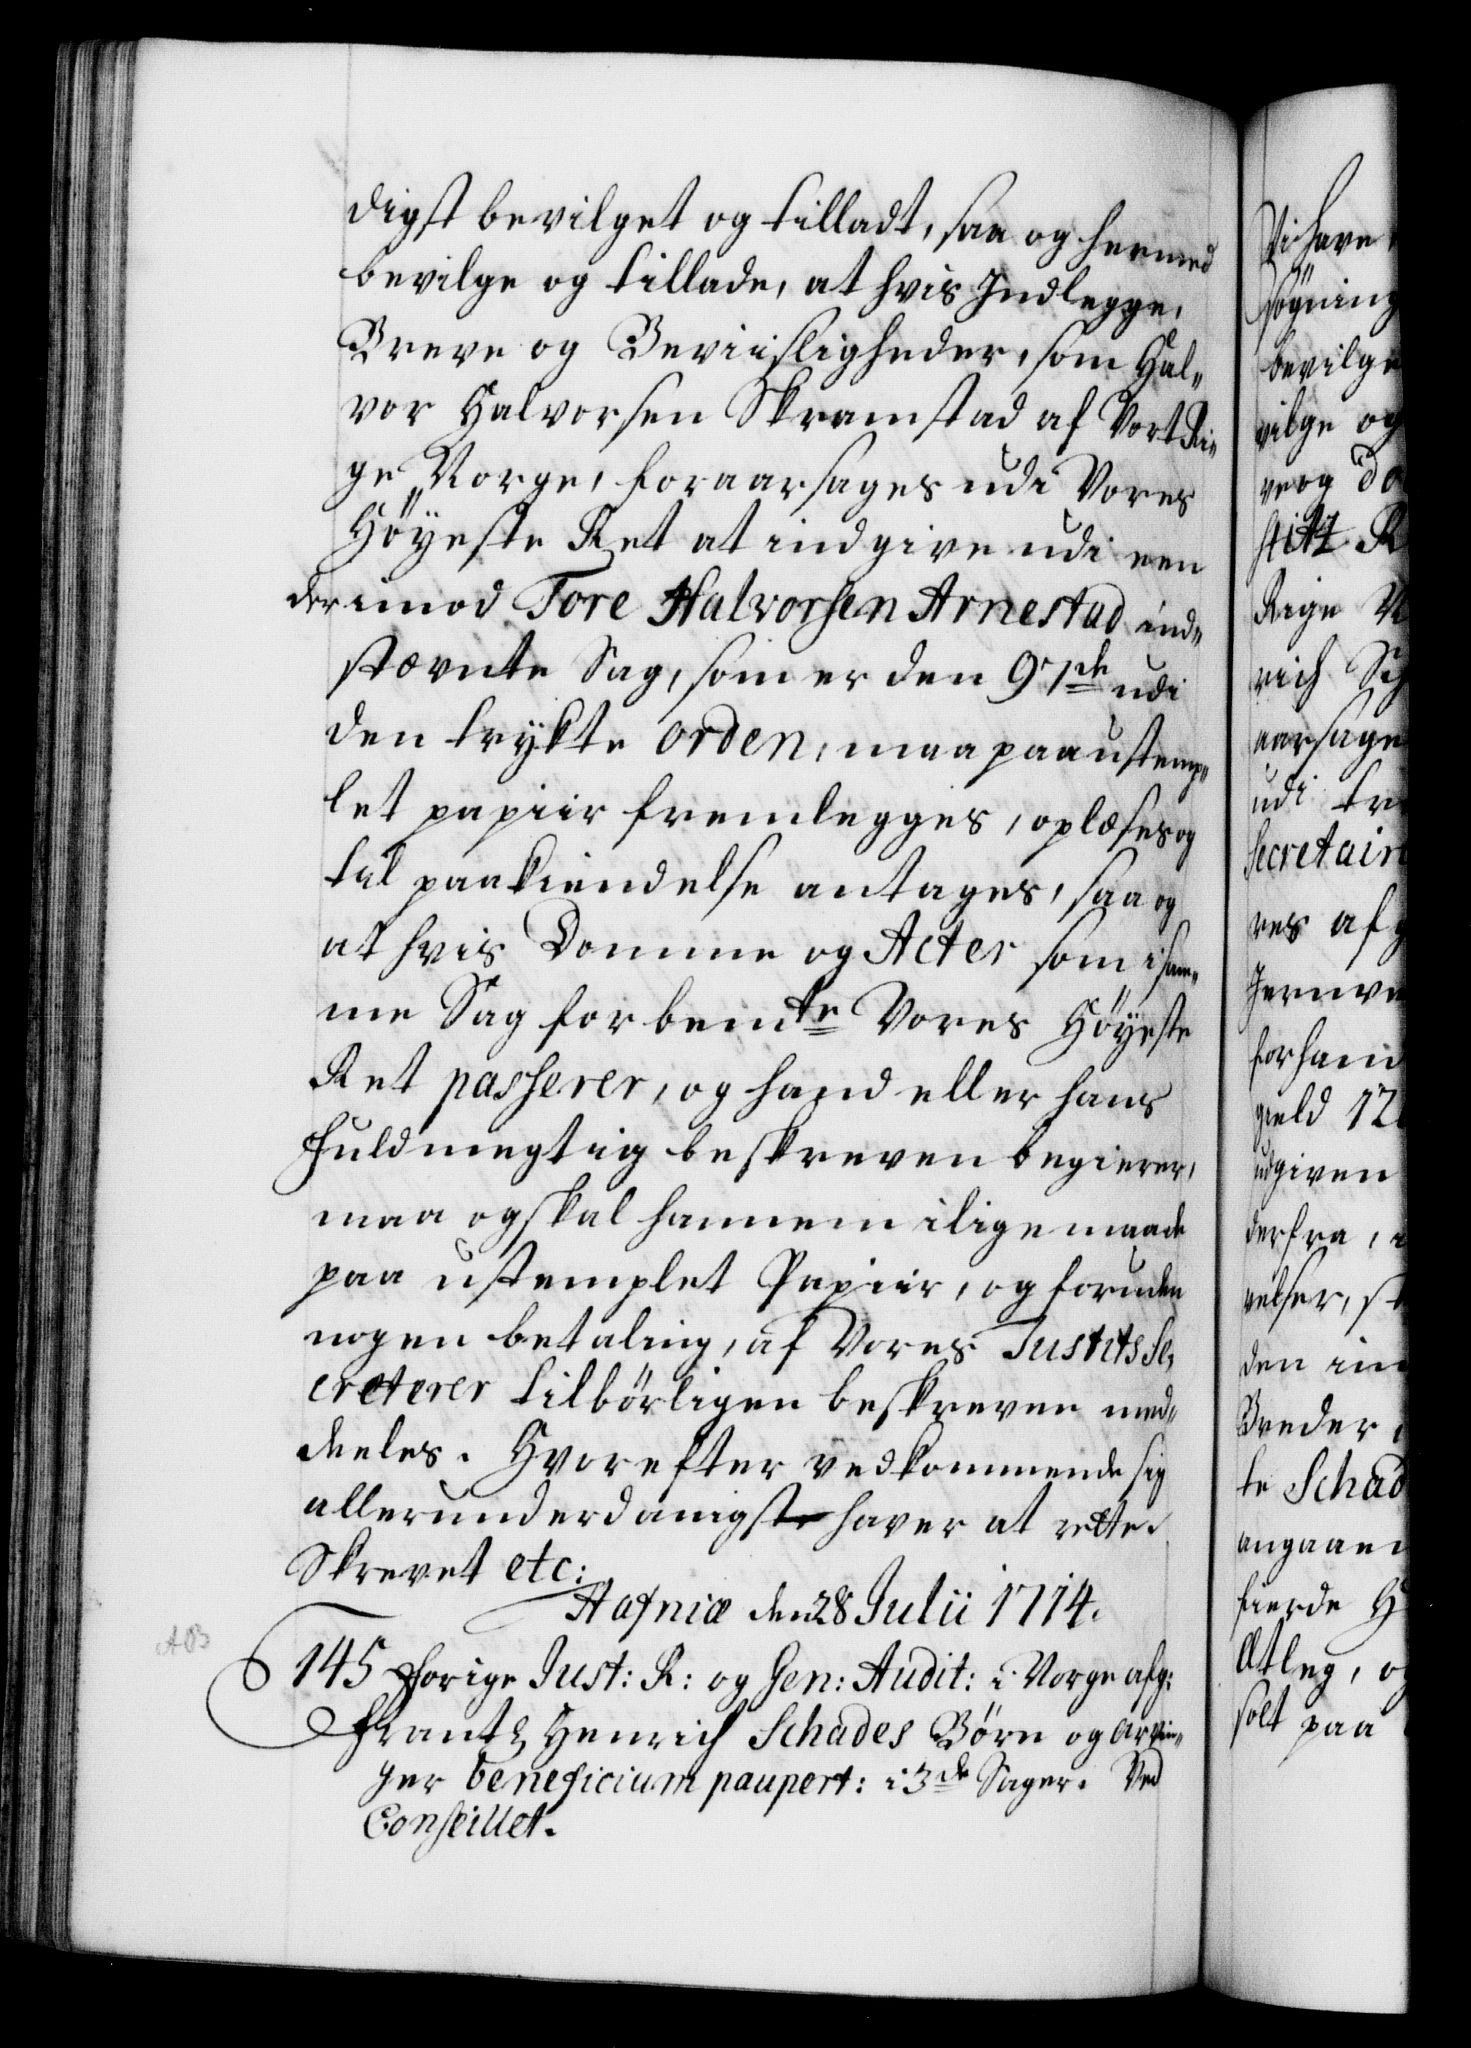 digst bevilget og tilladt, saa og hermed
bevilge og tillade, at hvis Indlegge,
Breve og Beviisligheder, som Hal„
vor Halvorsen Skramstad af Vort Ri„
ge Norge, foraarsages udi Vores
Höÿeste Ret at indgive udi een
derimod Tore Halvorsen Arnestad ind„
stævnte Sag, som er den 97de udi
den trykte orden, maa paa ustemp„
let papiir fremlegges, oplæses og
til paakiendelse antages, saa og
at hvis Domme og Acter som i sam„
me Sag for bemte Vores Höÿeste
Ret passerer, og hand eller hans
Fuldmegtig beskreven begierer,
maa og skal hannem i lige maade
paa ustemplet Papiir, og foruden
nogen betaling, af Vores Justits Se„
creterer tilbørligen beskreven med„
deeles. Hvorefter vedkommende sig
allerunderdanigst haver at rette.
Skrevet etc:
Hafniæ den 28 Julii 1714.
145 Forige Just: R: og Gen: Audit: i Norge afg:
Frantz Henrich Schades Børn og Arvin„
ger beneficium paupert: i 3de Sager. Ved
Conseillet.
Vi have
søgning
bevilge
vilge og
Rige N
rich Sch
aarsage
udi tre
Secretair
res af g
forhand
gield 12
udgiven
derfra, i
velser, st
den im
te Schad
angaaen
fierde H
solt paa